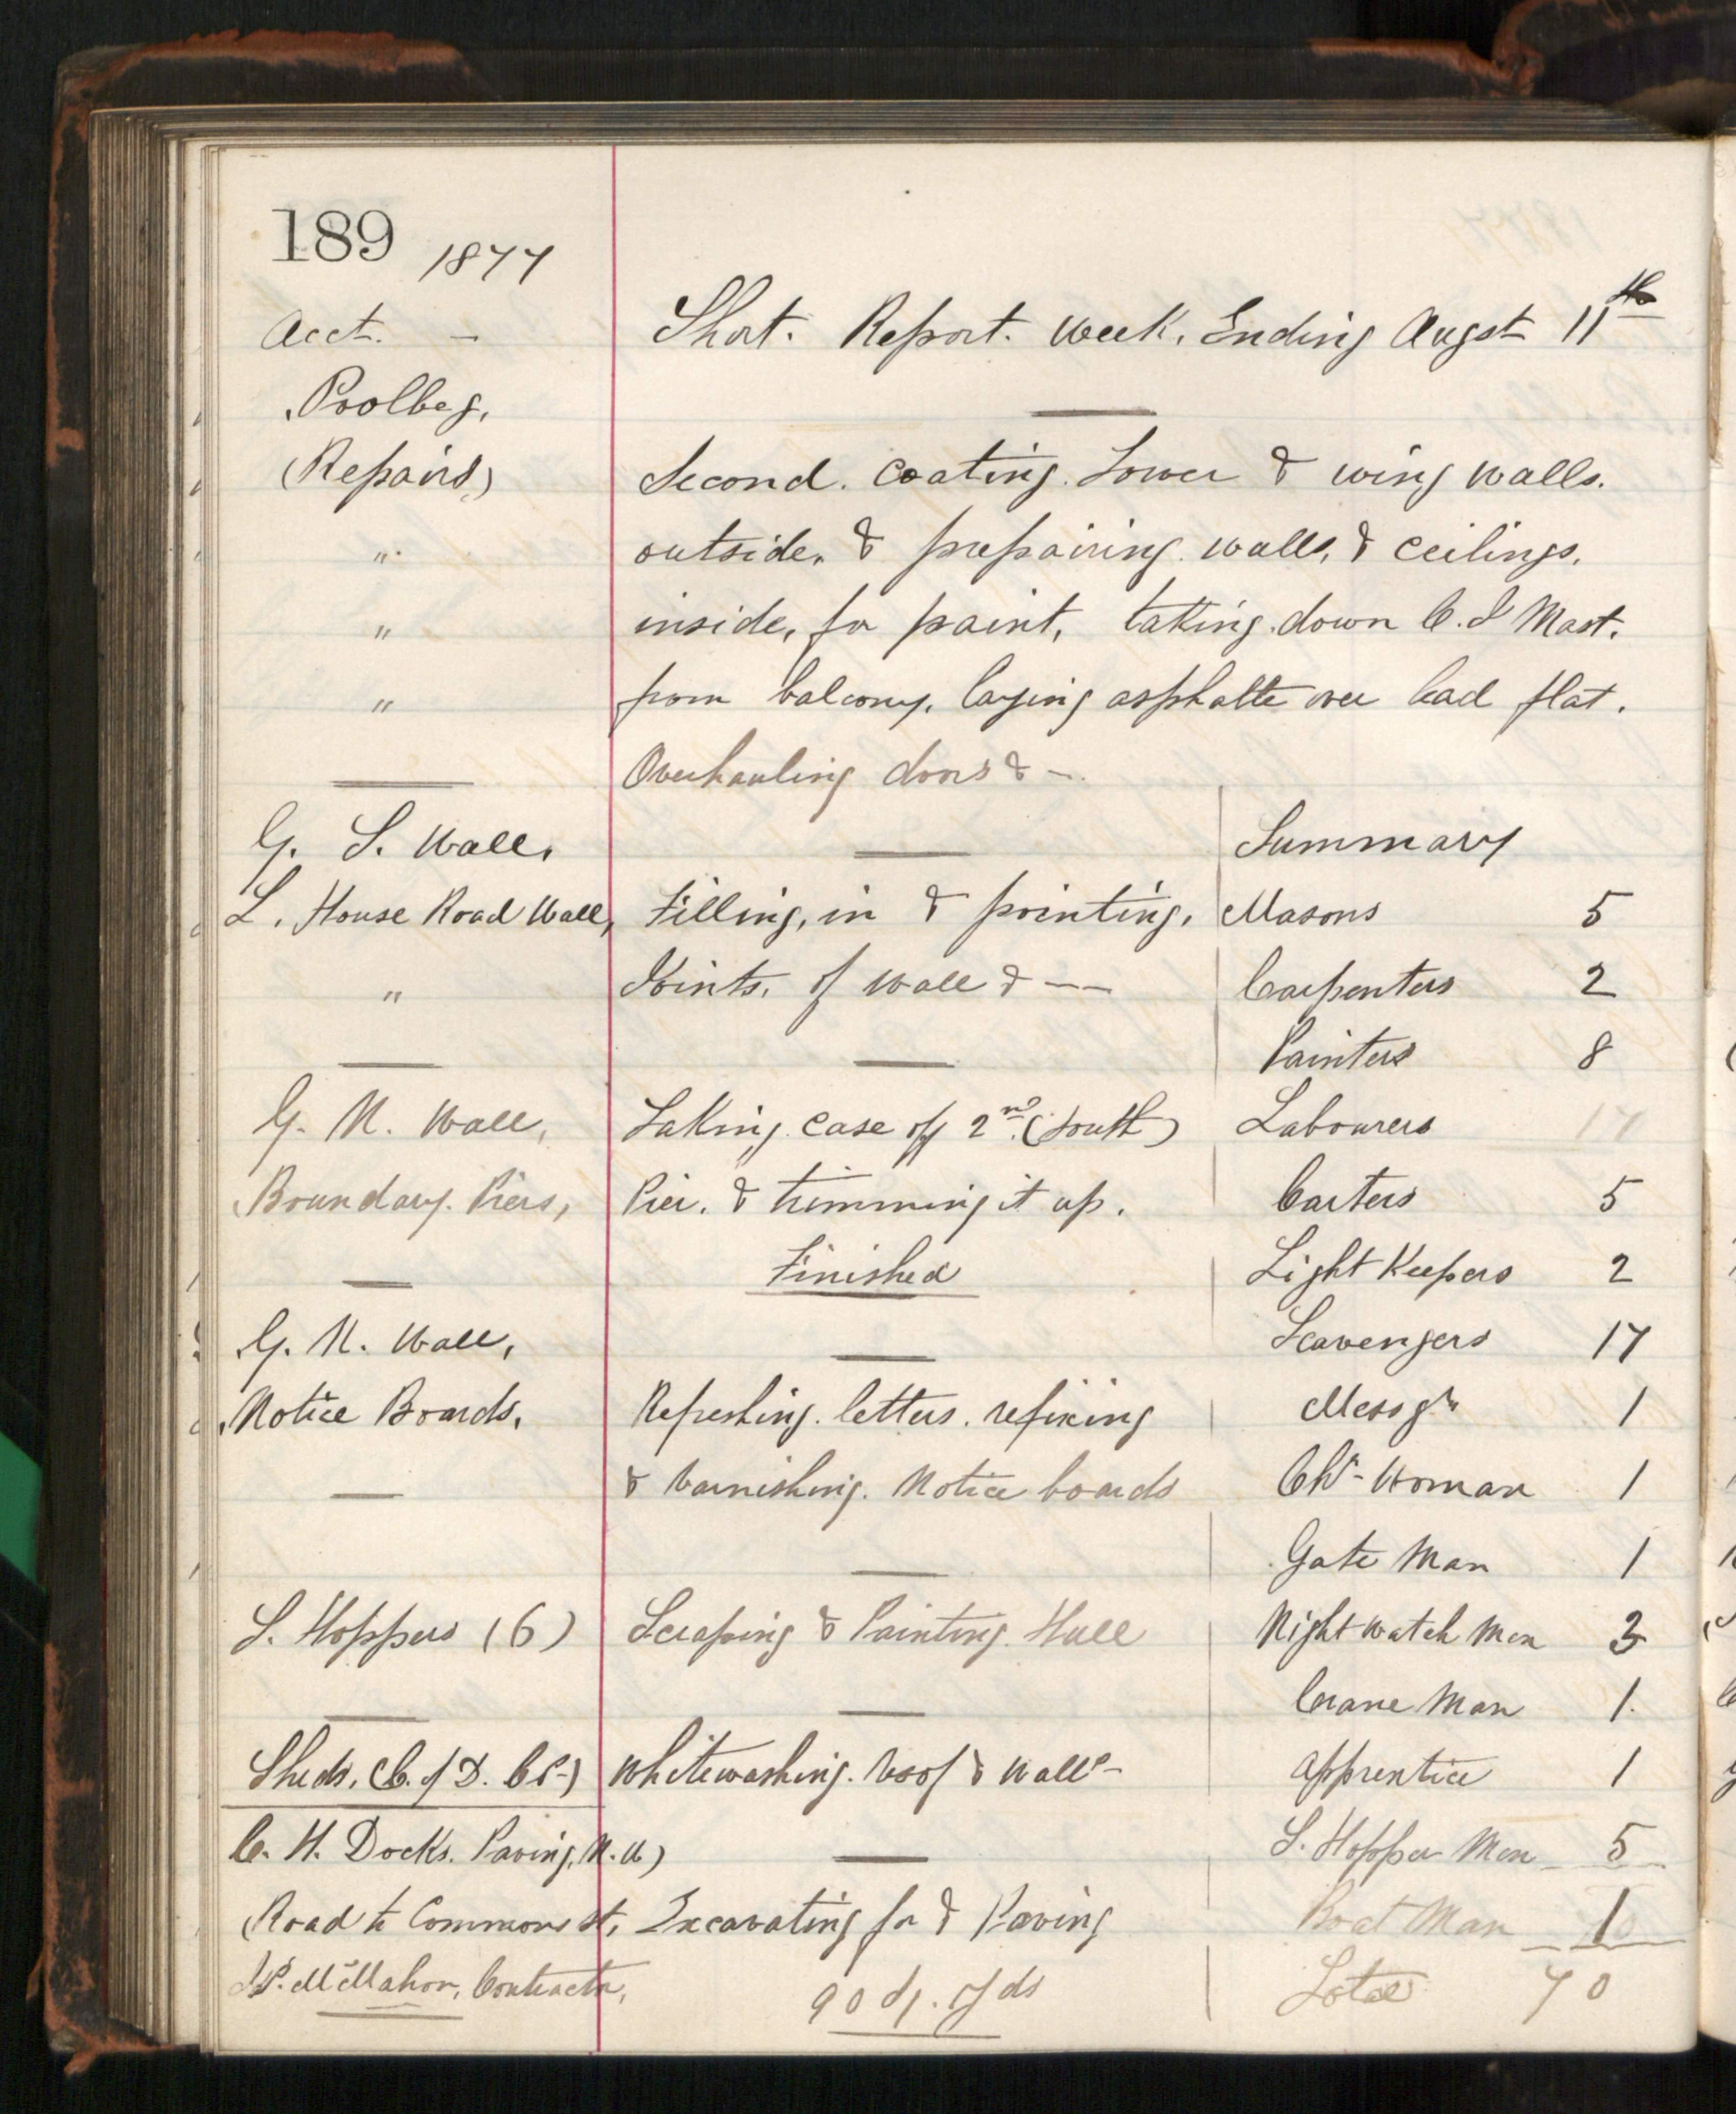 189 1877
Acct. — Short. Report. Week. Ending Augst 11th
Poolbeg.
(Repairs) Second. Coating. Tower & wing walls.
" outside. & prepairing. walls, & ceilings.
" inside, for paint, taking. down C. I Mast.
" from balcony. laying asphalte over lead flat.
Overhauling doors & —.
G. S. Wall. Summary
L. House Road Wall, Filling, in & pointing. Masons 5
" Joints. of wall & — — Carpenters 2
Painters 8
G. N. Wall, Taking. Case off 2nd. (South) Labourers 17
Boundary. Piers, Pier. & trimming it up. Carters 5
Finished Light Keepers 2
G. N. Wall, Scavengers 17
Notice Boards. Refreshing. letters. refixing Messgr 1
& Varnishing. Notice boards Chr- Woman 1
Gate Man 1
S. Hoppers (6) Scraping & Painting. Hull Night watch Men 3
Crane Man 1.
Sheds. (C. of D. Co-) Whitewashing. Roof & Walls - Apprentice 1
C. H. Docks. Paving. N. W) S. Hopper Men 5
(Road to Commons st, Excavating for & Paving Boat Man 1
McMahon, Contractor, 90 sq. yds Total 70